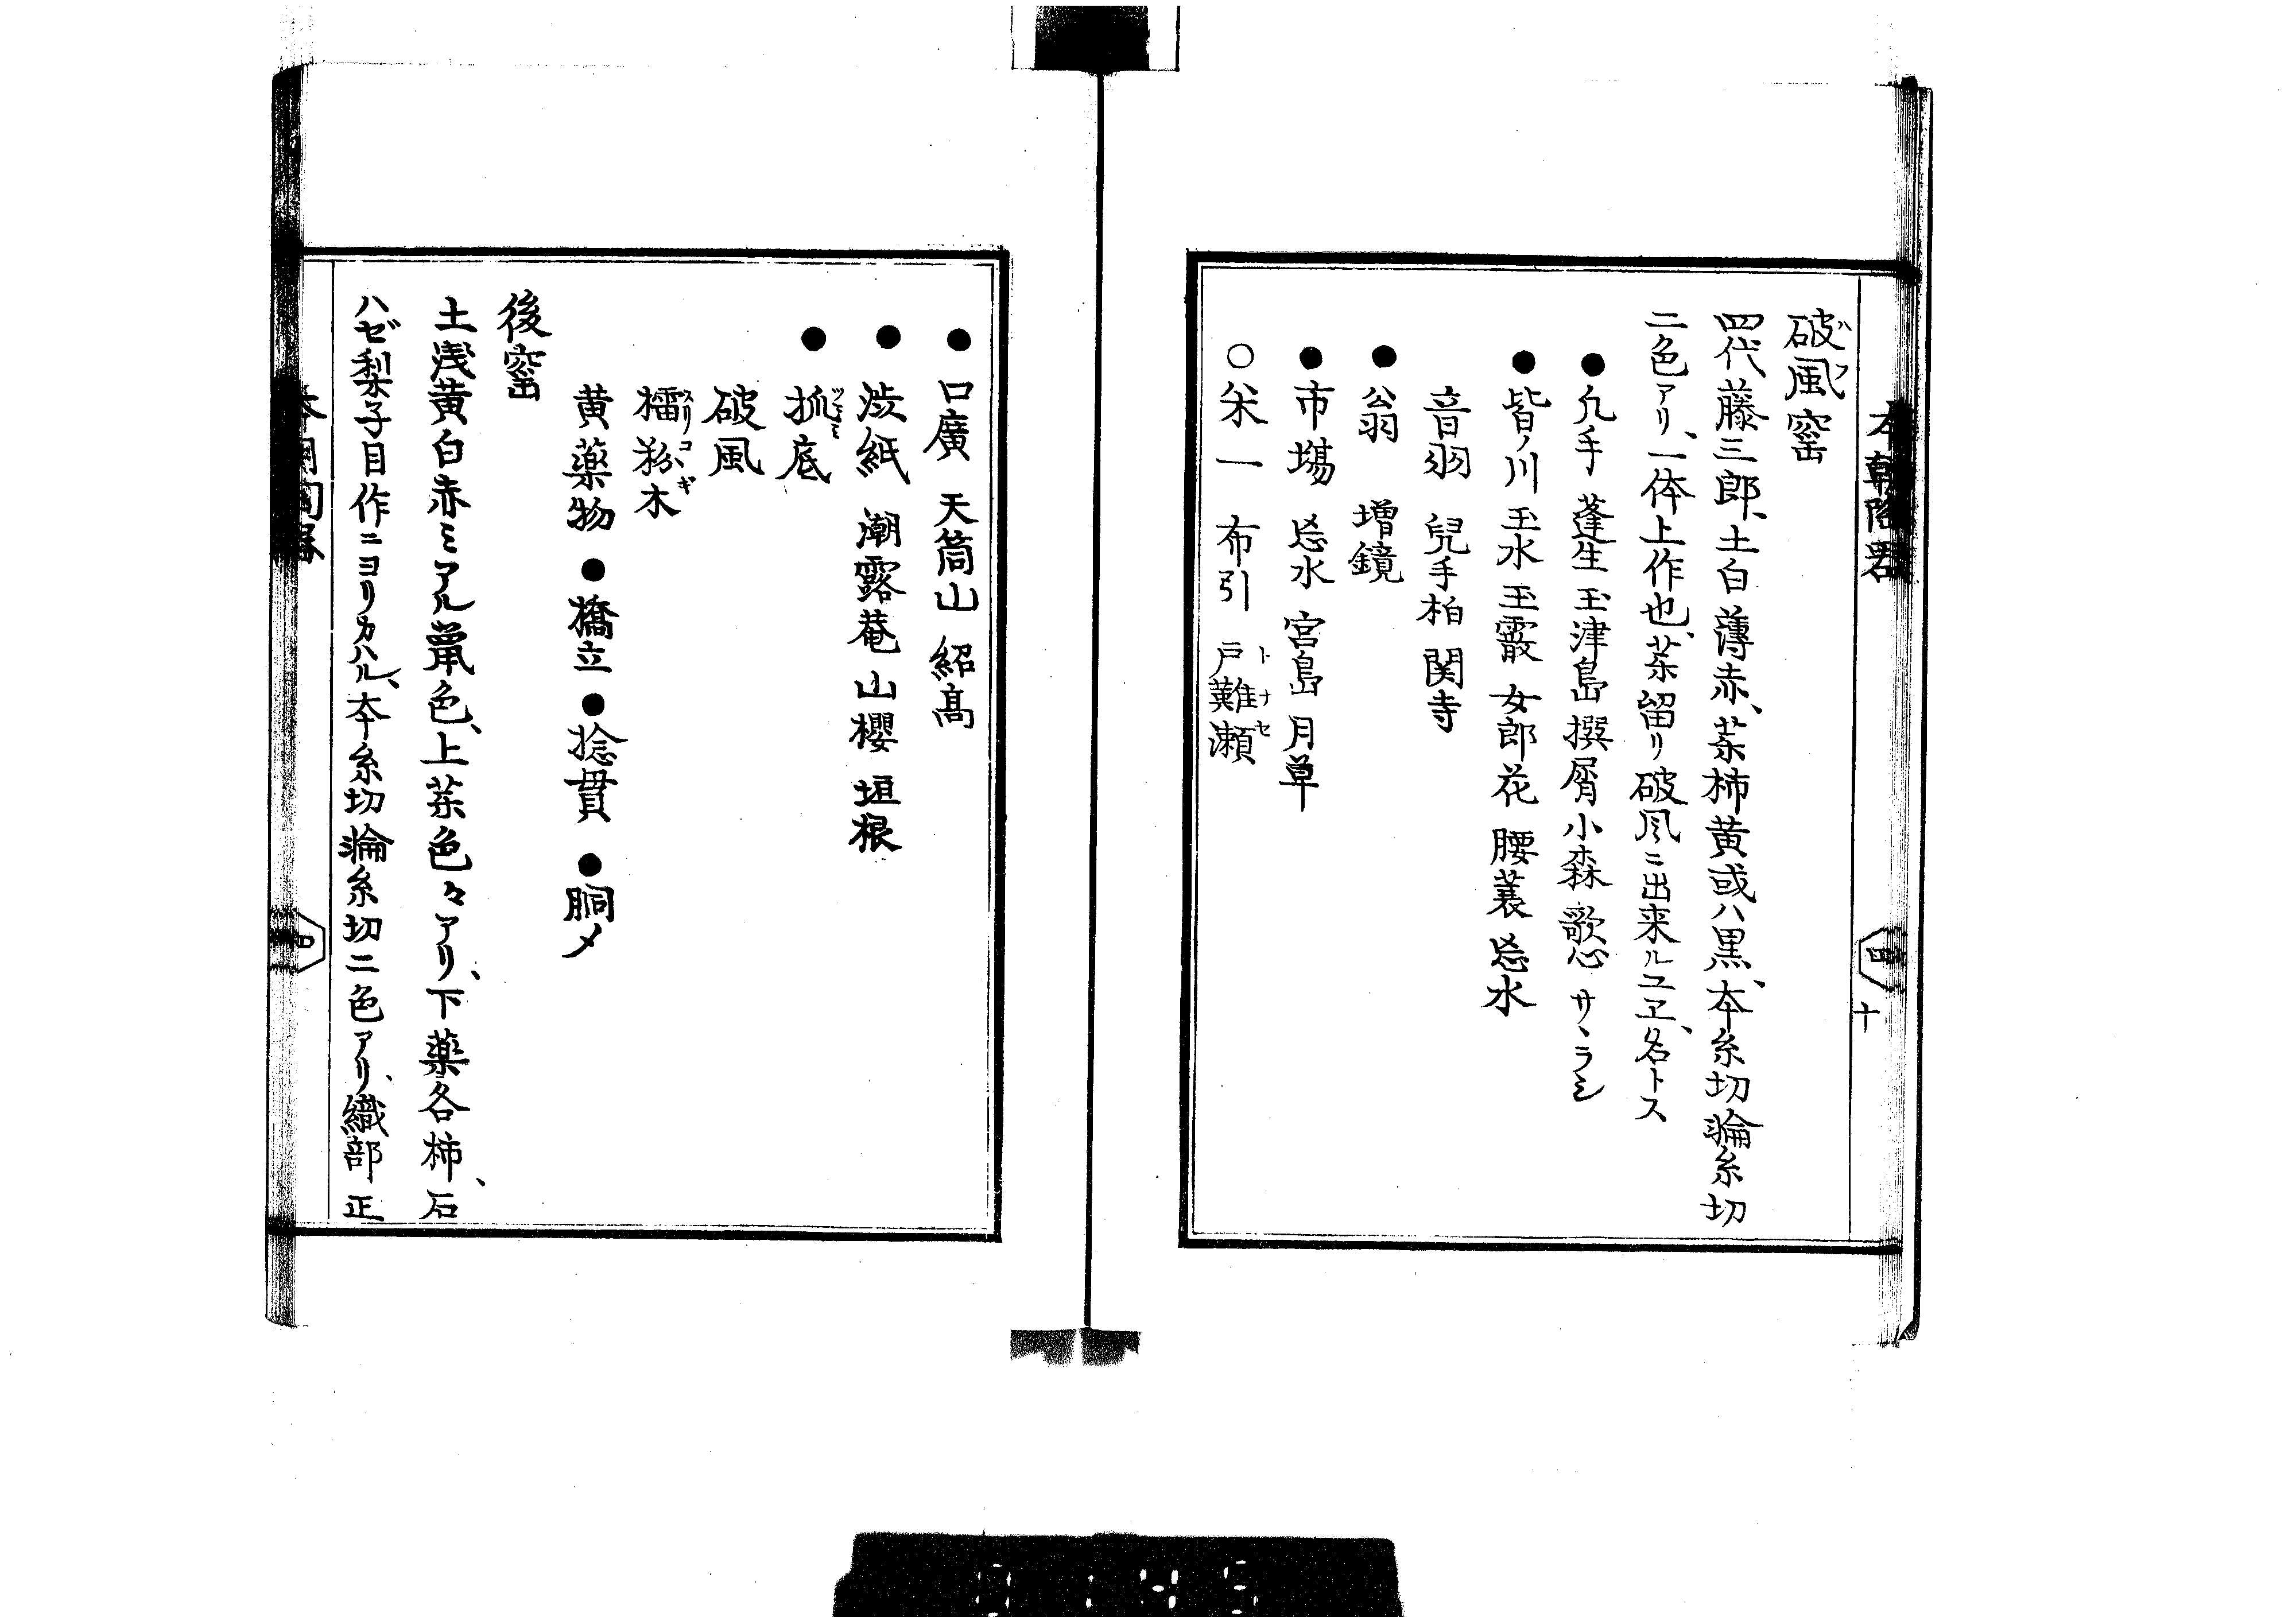 破風窑
ハフ
四代藤三郎、土白薄赤、茶柿黄或ハ黒、夲糸切淪糸切
二色アリ、一体上作也、茶留リ破風ニ出来ルユヱ、名トス
● 凢手 蓬生 玉津島 撰屑 小森 歌心 サヽラシ
● 皆ノ川 玉水 玉霰 女郎花 腰蓑 忘水
音羽 兒手柏 関寺
● 翁 増鏡
● 市塲 忘水 宮島 月草
○ 米一 布引 戸難瀬
トナセ
四
十
● 口廣 天筒山 紹高
● 渋紙 潮露菴 山櫻 垣根
● 抓底
ツマミ
破風
擂粉木
スリコギ
黄薬物 ● 橋立 ● 捻貫 ● 胴〆
後窑
土浅黄白赤ミアル鼠色、上茶色々アリ、下薬各柿、石
ハゼ梨子目作ニヨリカハル、夲糸切淪糸切二色アリ、織部正